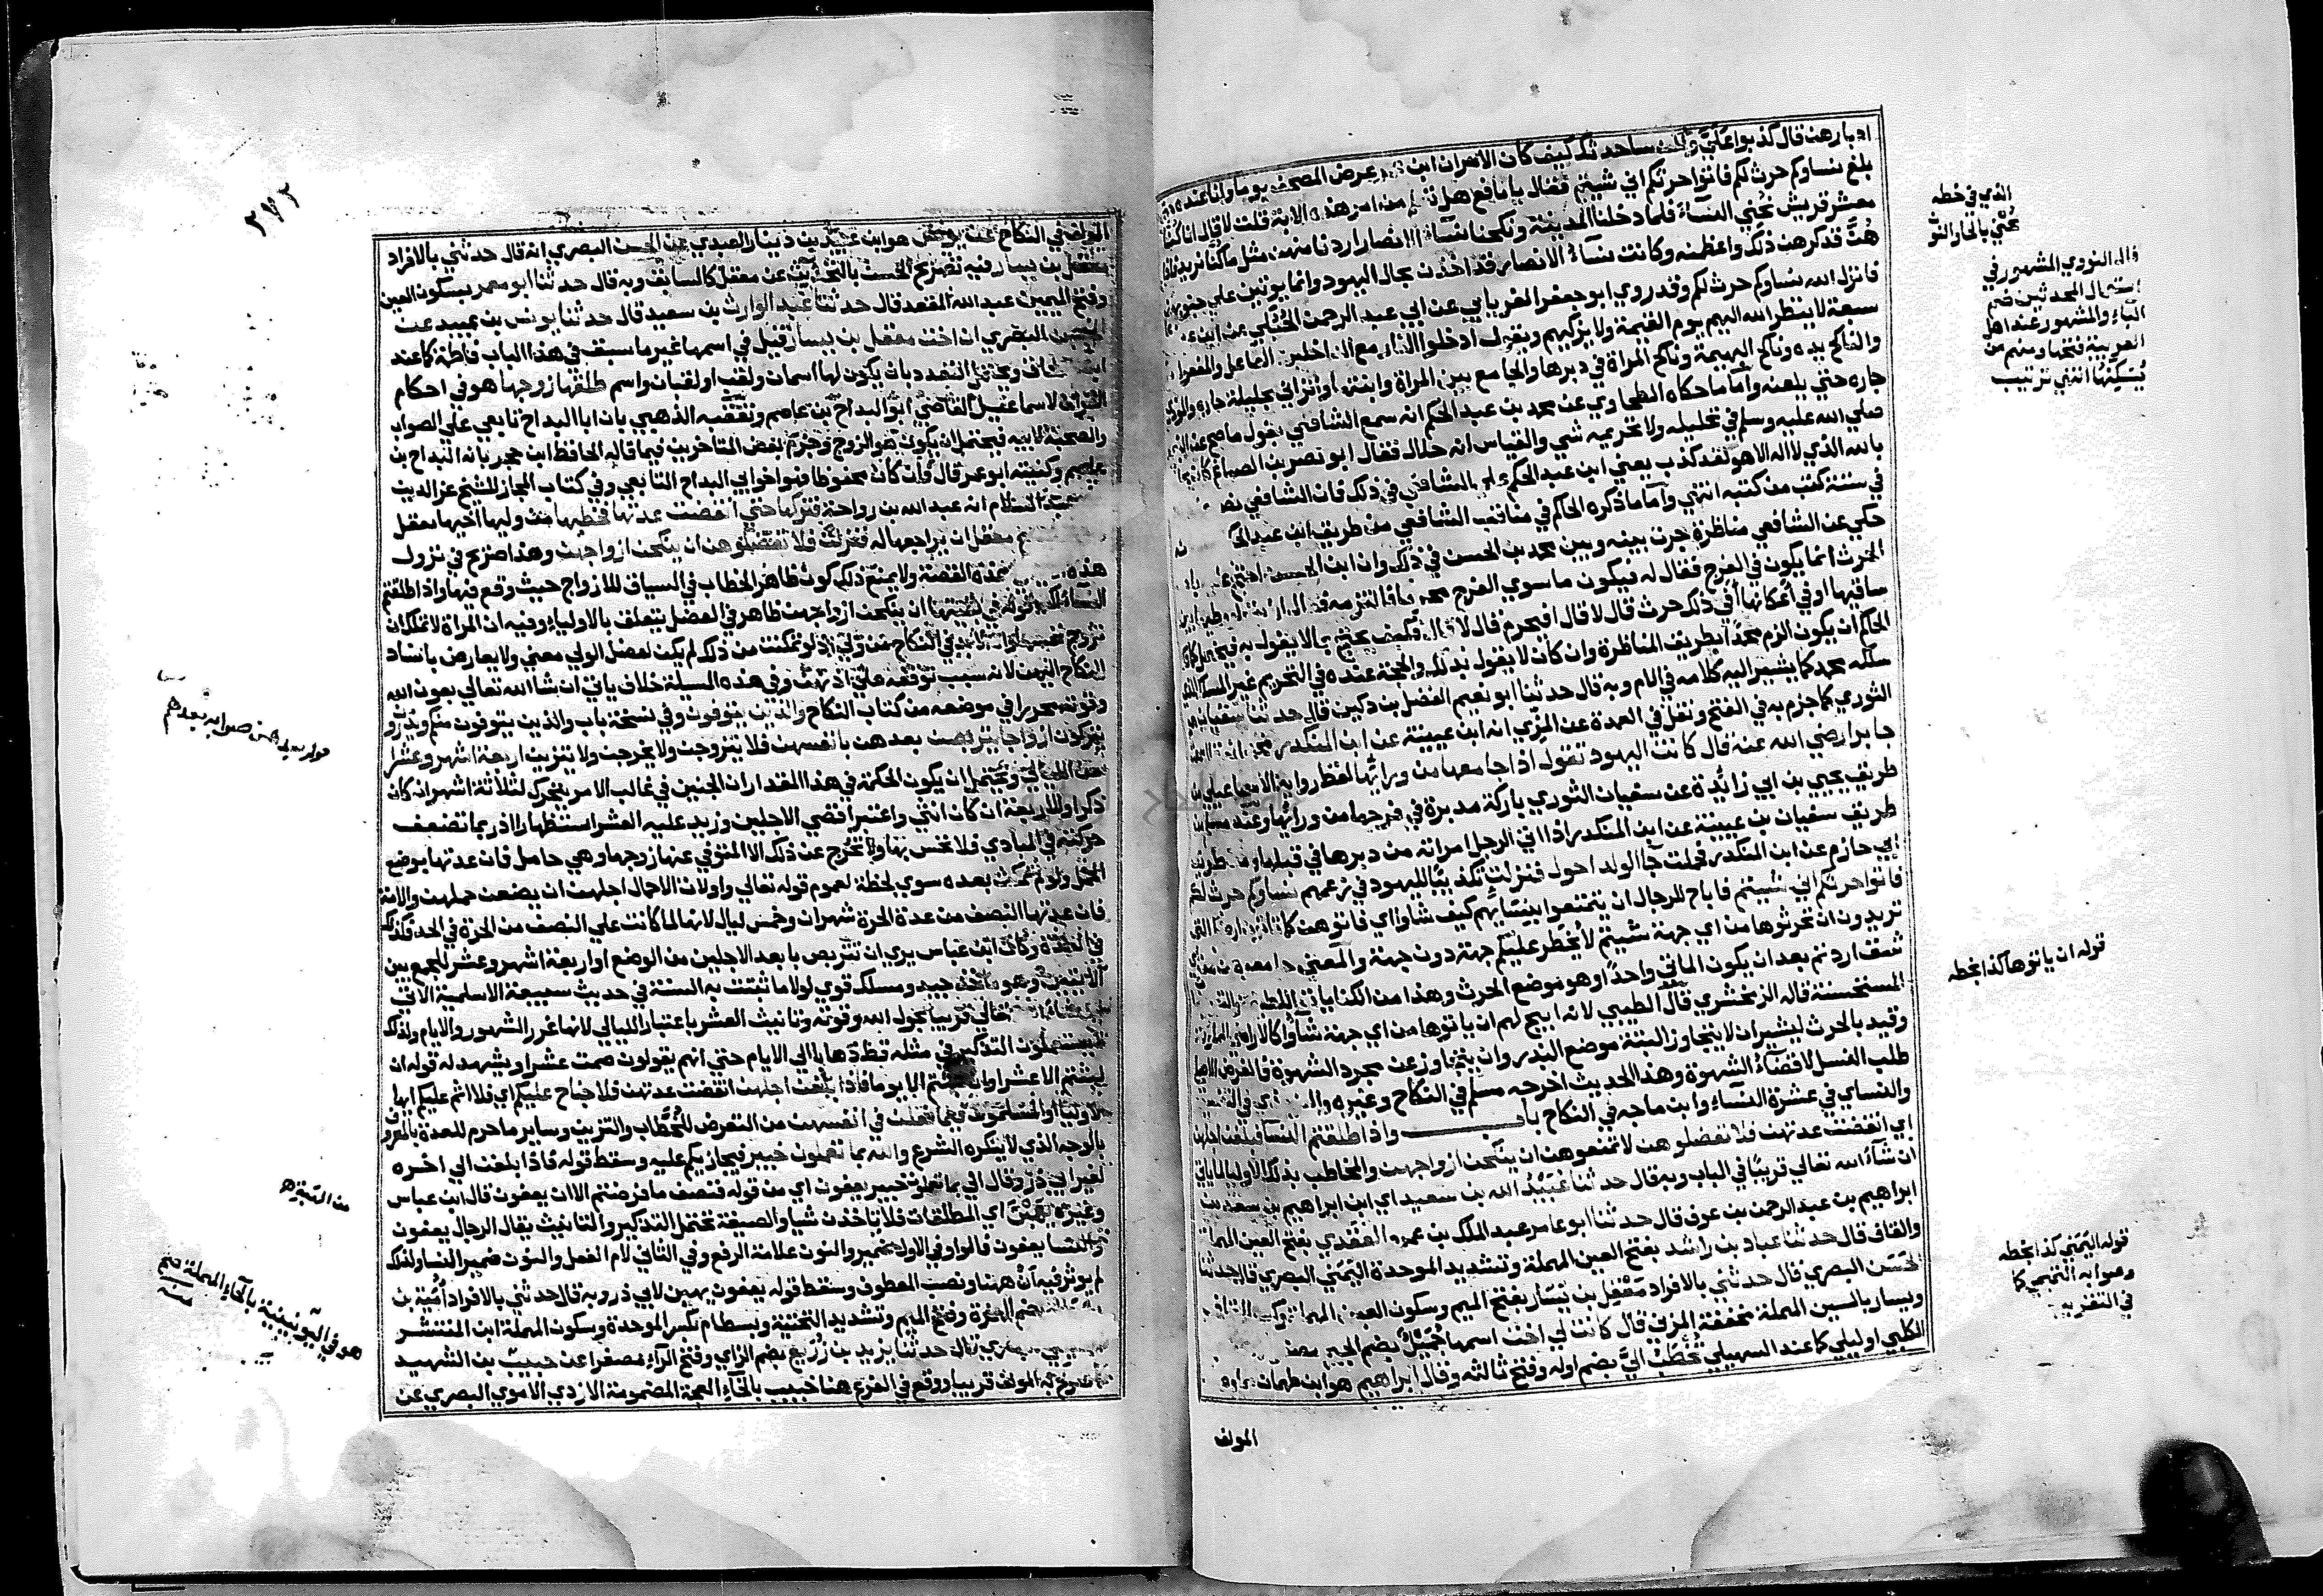 ادبارهن قال كذبوا علي ولكن ساحدثك كيف كان الامر ان ابن عمر عرض المصحف يوما وانا عنده حتي
بلغ نساوكم حرث لكم فاتوا حرثكم اني شيتم فقال يا نافع هل تعلم من امر هذه الاية قلت لا قال انا كنا
معشر قريش نجبي النساء فلما دخلنا المدينة ونكحنا نساء الانصار اردنا منهن مثل ما كنا نريد فاذا
هن قد كرهن ذلك واعظمنه وكانت نساء الانصار قد اخذت بحال اليهود وانما يوتين علي جنوبهن
فانزل الله نساوكم حرث لكم وقد روي ابو جعفر الفريابي عن ابي عبد الرحمن الحبلي عن ابن
سبعة لا ينظر الله اليهم يوم القيمة ولا يزكيهم ويقول ادخلوا النار مع الداخلين الفاعل والمفعول
والناكح يده وناكح البهيمة وناكح المراة في دبرها والجامع بين المراة وابنتها والزاني بحليلة جاره والموذي
جاره حتي يلعنه واما ما حكاه الطحاوي عن محمد بن عبد الحكم انه سمع الشافعي يقول ما صح عن النبي
صلي الله عليه وسلم في تحليله ولا تحريمه شي والقياس انه حلال فقال ابو نصر بن الصباغ كان
بالله الذي لا اله الا هو لقد كذب يعني ابن عبد الحكم علي الشافعي في ذلك فان الشافعي نص
في ستة كتب من كتبه انتهي واما ما ذكره الحاكم في مناقب الشافعي من طريق ابن عبد الحكم انه
حكي عن الشافعي مناظرة جرت بينه وبين محمد بن الحسن في ذلك وان ابن الحسن احتج عليه بان
الحرث انما يكون في الفرج فقال له فيكون ما سوي الفرج محرما فالتزمه فقال ارايت لو وطيها بين
ساقيها او في اعكانها افي ذلك حرث قال لا قال افيحرم قال لا قال فكيف تحتج بما لا يقول به فيحتمل كما قال
الحاكم ان يكون الزم محمدا بطريق المناظرة وان كان لا يقول بذلك والحجة عنده في التحريم غير المسلك الذي
سلكه محمد كما يشير اليه كلامه في الام وبه قال حدثنا ابو نعيم الفضل بن دكين قال حدثنا سفيان
الثوري كما جزم به في الفتح ونقل في العمدة عن المزي انه ابن عيينة عن ابن المنكدر
جابرا رضي الله عنه قال كانت اليهود تقول اذا جامعها من ورائها لفظ رواية الاسماعيلي من
طريق يحيي بن ابي زائدة عن سفيان الثوري باركة مدبرة في فرجها من ورائها وعند مسلم من
طريق سفيان بن عيينة عن ابن المنكدر اذا اتي الرجل امراته من دبرها في قبلها ومن طريق
ابي حازم عن ابن المنكدر فحملت جا الولد احول فنزلت تكذيبا لليهود في زعمهم نساوكم حرث لكم
فاتوا حرثكم اني شيتم فاباح للرجال ان يتمتعوا بنسايهم كيف شاوا اي فاتوهن كما تاتون ارضكم التي
تريدون ان تحرثوها من اي جهة شيتم لا يحظر عليكم جهة دون جهة والمعني جامعوهن من اي
شق اردتم بعد ان يكون الماتي واحدا وهو موضع الحرث وهذا من الكنايات اللطيفة والتعريضات
المستحسنة قاله الزمخشري قال الطيبي لانه ابيح لهم ان ياتوها من اي جهة شاوا كالاراضي المملوكة
وقيد بالحرث ليشير ان لا يتجاوز البتة موضع البذر وان يتجاوز عن مجرد الشهوة فالغرض الاصلي
طلب النسل لا قضاء الشهوة وهذا الحديث اخرجه مسلم في النكاح وغيره والترمذي في التفسير
والنساي في عشرة النساء وابن ماجه في النكاح باب واذا طلقتم النسا فبلغن اجلهن
اي انقضت عدتهن فلا تعضلوهن لا تمنعوهن ان ينكحن ازواجهن والمخاطب بذلك الاوليا لما ياتي
ان شاء الله تعالي قريبا في الباب وبه قال حدثنا عبيد الله بن سعيد اي ابن ابراهيم بن سعد بن
ابراهيم بن عبد الرحمن بن عوف قال حدثنا ابو عامر عبد الملك بن عمرو العقدي بفتح العين المهملة
والقاف قال حدثنا عباد بن راشد بفتح العين المهملة وتشديد الموحدة اليمني البصري قال حدثنا
الحسن البصري قال حدثني بالافراد معقل بن يسار بفتح الميم وسكون العين المهملة وكسر القاف
ويسار بالسين المهملة مخففة المزني قال كانت لي اخت اسمها جميل بضم الجيم مصغرا
الكلبي او ليلي كما عند السهيلي تخطب الي بضم اوله وفتح ثالثه وقال ابراهيم هو ابن طهمان
المولف
الذي في خطه
نجبي بالخا والنون
قال النووي المشهور في
استعمال المحدثين ضم
الباء والمشهور عند اهل
العربية فتحها ومنهم من
يسكنها انتهي ترتيب
قوله ان ياتوها كذا بخطه
قوله اليمني كذا بخطه
وصوابه التميمي كما
في التقريب
٢٧٢
المولف في النكاح عن يونس هو ابن عبيد بن دينار العبدي عن الحسن البصري انه قال حدثني بالافراد
معقل بن يسار فيه تصريح الحسن بالتحديث عن معقل كالسابق وبه قال حدثنا ابو معمر بسكون العين
وفتح الميمين عبد الله المقعد قال حدثنا عبد الوارث بن سعيد قال حدثنا يونس بن عبيد عن
الحسن البصري ان اخت معقل بن يسار قيل في اسمها غير ما سبق في هذا الباب فاطمة كما عند
ابن اسحاق ويحتمل التعدد بان يكون لها اسمان ولقب او لقبان واسم طلقها زوجها هو في احكام
القران لاسماعيل القاضي ابو البداح بن عاصم وتعقبه الذهبي بان ابا البداح تابعي علي الصواب
والصحبة لابيه فيحتمل ان يكون هو الزوج وجزم بعض المتاخرين فيما قاله الحافظ ابن حجر بانه البداح بن
عاصم وكنيته ابو عمر قال فان كان محفوظا فهو اخو ابي البداح التابعي وفي كتاب المجاز للشيخ عز الدين
بن عبد السلام انه عبد الله بن رواحة فتركها حتي انقضت عدتها فخطبها من وليها اخيها معقل
معقل ان يراجعها له فنزلت فلا تعضلوهن ان ينكحن ازواجهن وهذا صريح في نزول
هذه القصة ولا يمنع ذلك كون ظاهر الخطاب في السياق للازواج حيث وقع فيها واذا طلقتم
النساء لكن قوله في بقيتها ان ينكحن ازواجهن ظاهر في العضل يتعلق بالاولياء وفيه ان المراة لا تملك ان
تزوج نفسها وانه لا بد في النكاح من ولي اذ لو تمكنت من ذلك لم يكن لعضل الولي معني ولا يعارض باسناد
النكاح اليهن لانه سبب توقفه علي اذنهن وفي هذه المسيلة خلاف ياتي ان شا الله تعالي بعون الله
وقوته محررا في موضعه من كتاب النكاح والذين يتوفون وفي نسخة باب والذين يتوفون منكم ويذرون
يتركون ازواجا يتربصن بعدهن بانفسهن فلا يتزوجن ولا يخرجن ولا يتزين اربعة اشهر وعشرا
من الليالي ويحتمل ان يكون الحكمة في هذا المقدار ان الجنين في غالب الامر يتحرك لثلاثة اشهر ان كان
ذكرا ولاربعة ان كان انثي واعتبر اقصي الاجلين وزيد عليه العشر استظهارا اذ ربما تضعف
حركته في المبادي فلا تحس بها ولا تخرج عن ذلك الا المتوفي عنها زوجها وهي حامل فان عدتها بوضع
الحمل ولو لم تمكث بعده سوي لحظة لعموم قوله تعالي واولات الاحمال اجلهن ان يضعن حملهن والامة
فان عدتها النصف من عدة الحرة شهران وخمس ليال لانها لما كانت علي النصف من الحرة في الحد فكذلك
في العدة وكان ابن عباس يري ان تتربص بابعد الاجلين من الوضع او اربعة اشهر وعشر للجمع بين
الايتين وهو ماخذ جيد ومسلك قوي لولا ما ثبتت به السنة في حديث سبيعة الاسلمية الاتي
ان شاء الله تعالي قريبا بحول الله وقوته وتانيث العشر باعتبار الليالي لانها غرر الشهور والايام ولذلك
لا يستعملون التذكير في مثله قط ذهابا الي الايام حتي انهم يقولون صمت عشرا ويشهد له قوله ان
لبثتم الا عشرا وان لبثتم الا يوما فاذا بلغن اجلهن انقضت عدتهن فلا جناح عليكم اي فلا اثم عليكم ايها
الاوليا او المسلمون فيما فعلن في انفسهن من التعرض للخطاب والتزين وساير ما حرم للعدة بالمعروف
بالوجه الذي لا ينكره الشرع والله بما تعملون خبير فيجازيكم عليه وسقط قوله فاذا بلغن الي اخره
لغير ابي ذر وقال الي بما تعملون خبير يعفون اي من قوله فنصف ما فرضتم الا ان يعفون قال ابن عباس
وغيره يهبن اي المطلقات فلا ياخذن شيا والصيغة تحتمل التذكير والتانيث يقال الرجال يعفون
والنسا يعفون فالواو في الاول ضمير والنون علامة الرفع وفي الثاني لام الفعل والنون ضمير النسا ولذلك
لم يوثر فيه ان ههنا ونصب المعطوف وسقط قوله يعفون يهبن لابي ذر وبه قال حدثني بالافراد امية بن
بضم الهمزة وفتح الميم وتشديد التحتية وبسطام بكسر الموحدة وسكون المهملة ابن المنتشر
البصري قال حدثنا يزيد بن زريع بضم الزاي وفتح الراء مصغرا عن حبيب بن الشهيد
المولف قريبا ووقع في الفرع هنا خبيب بالخاء المعجمة المضمومة الازدي الاموي البصري عن
قوله بعدهن صوابه بعدهم
من الشهيد
هو في اليونينية بالحاء المهملة صح